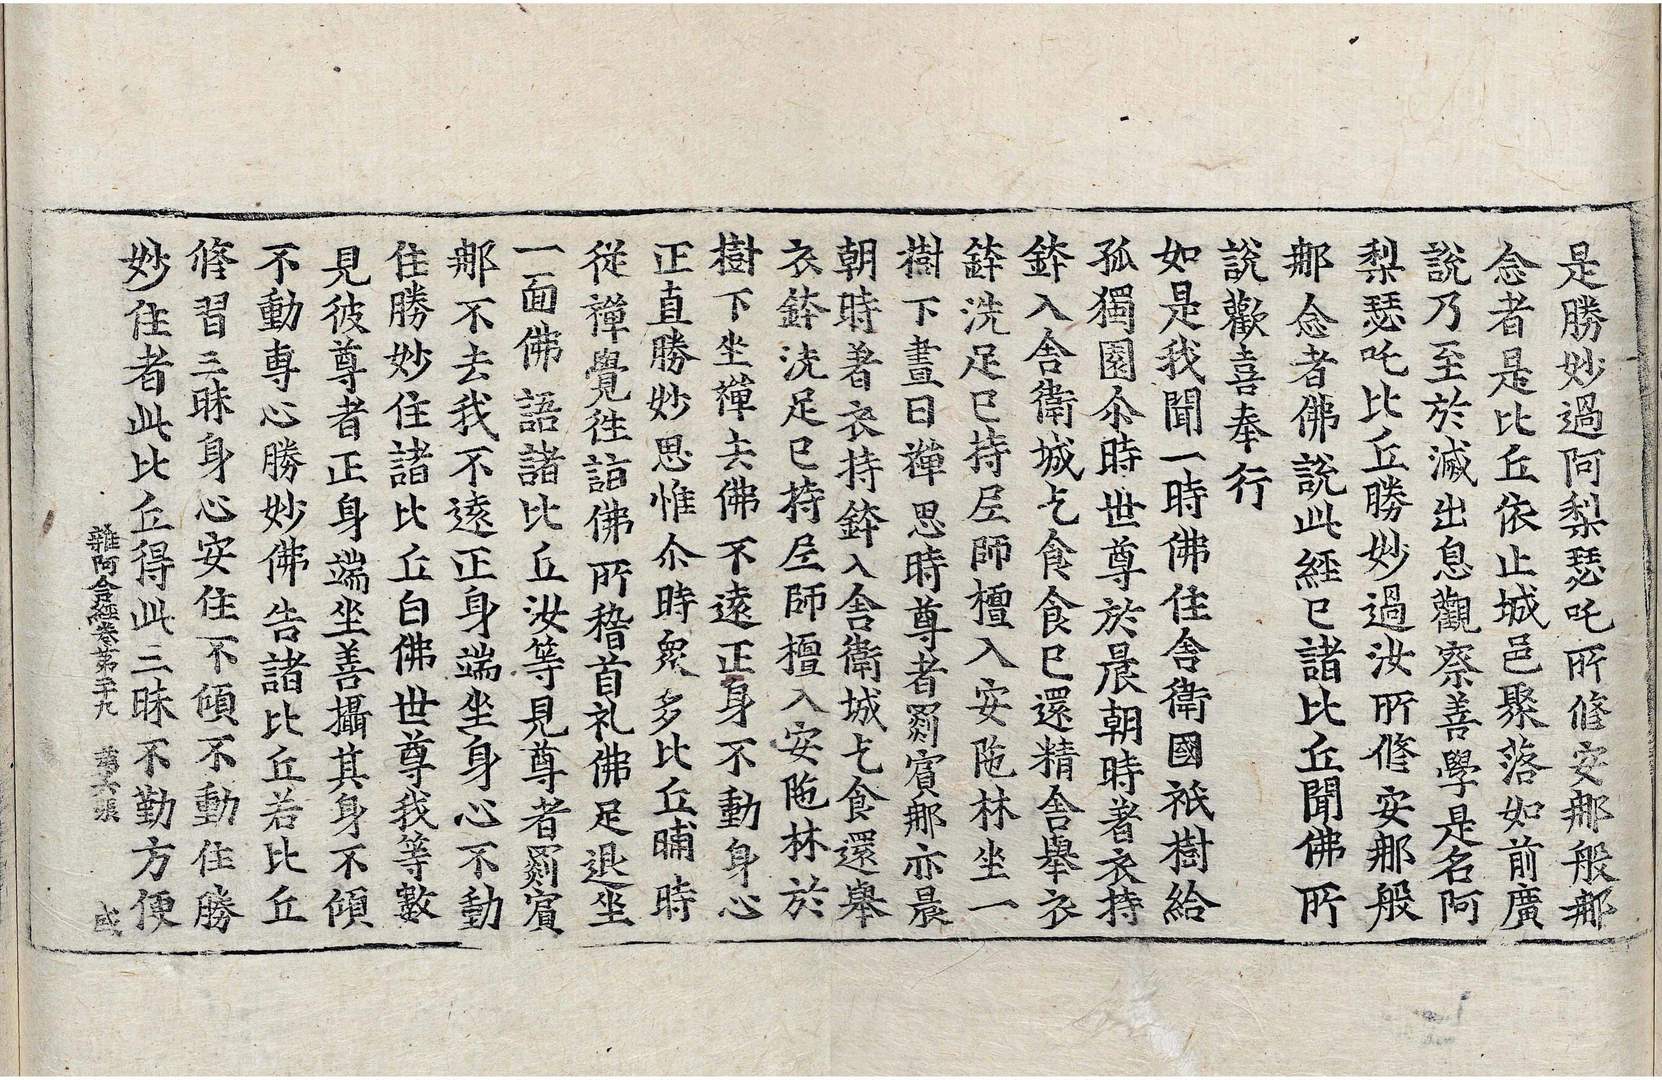 是勝妙過阿梨瑟吒所修安那般那
念者是比丘依止城邑聚落如前廣
說乃至於滅出息觀察善學是名阿
梨瑟吒比丘勝妙過汝所修安那般
那念者佛說此經已諸比丘聞佛所
說歡喜奉行
如是我聞一時佛住舍衛國祇樹給
孤獨園尒時世尊於晨朝時著衣持
鉢入舍衛城乞食食已還精舍舉衣
鉢洗足已持尼師檀入安陁林坐一
樹下晝日禪思時尊者罽賓那亦晨
朝時著衣持鉢入舍衛城乞食還舉
衣鉢洗足已持尼師檀入安陁林於
樹下坐禪去佛不遠正身不動身心
正直勝妙思惟尒時衆多比丘晡時
從禪覺往詣佛所稽首礼佛足退坐
一面佛語諸比丘汝等見尊者罽賓
那不去我不遠正身端坐身心不動
住勝妙住諸比丘白佛世尊我等數
見彼尊者正身端坐善攝其身不傾
不動專心勝妙佛告諸比丘若比丘
修習三昧身心安住不傾不動住勝
妙住者此比丘得此三昧不勤方便
雜阿含經卷第二十九 第六張 盛